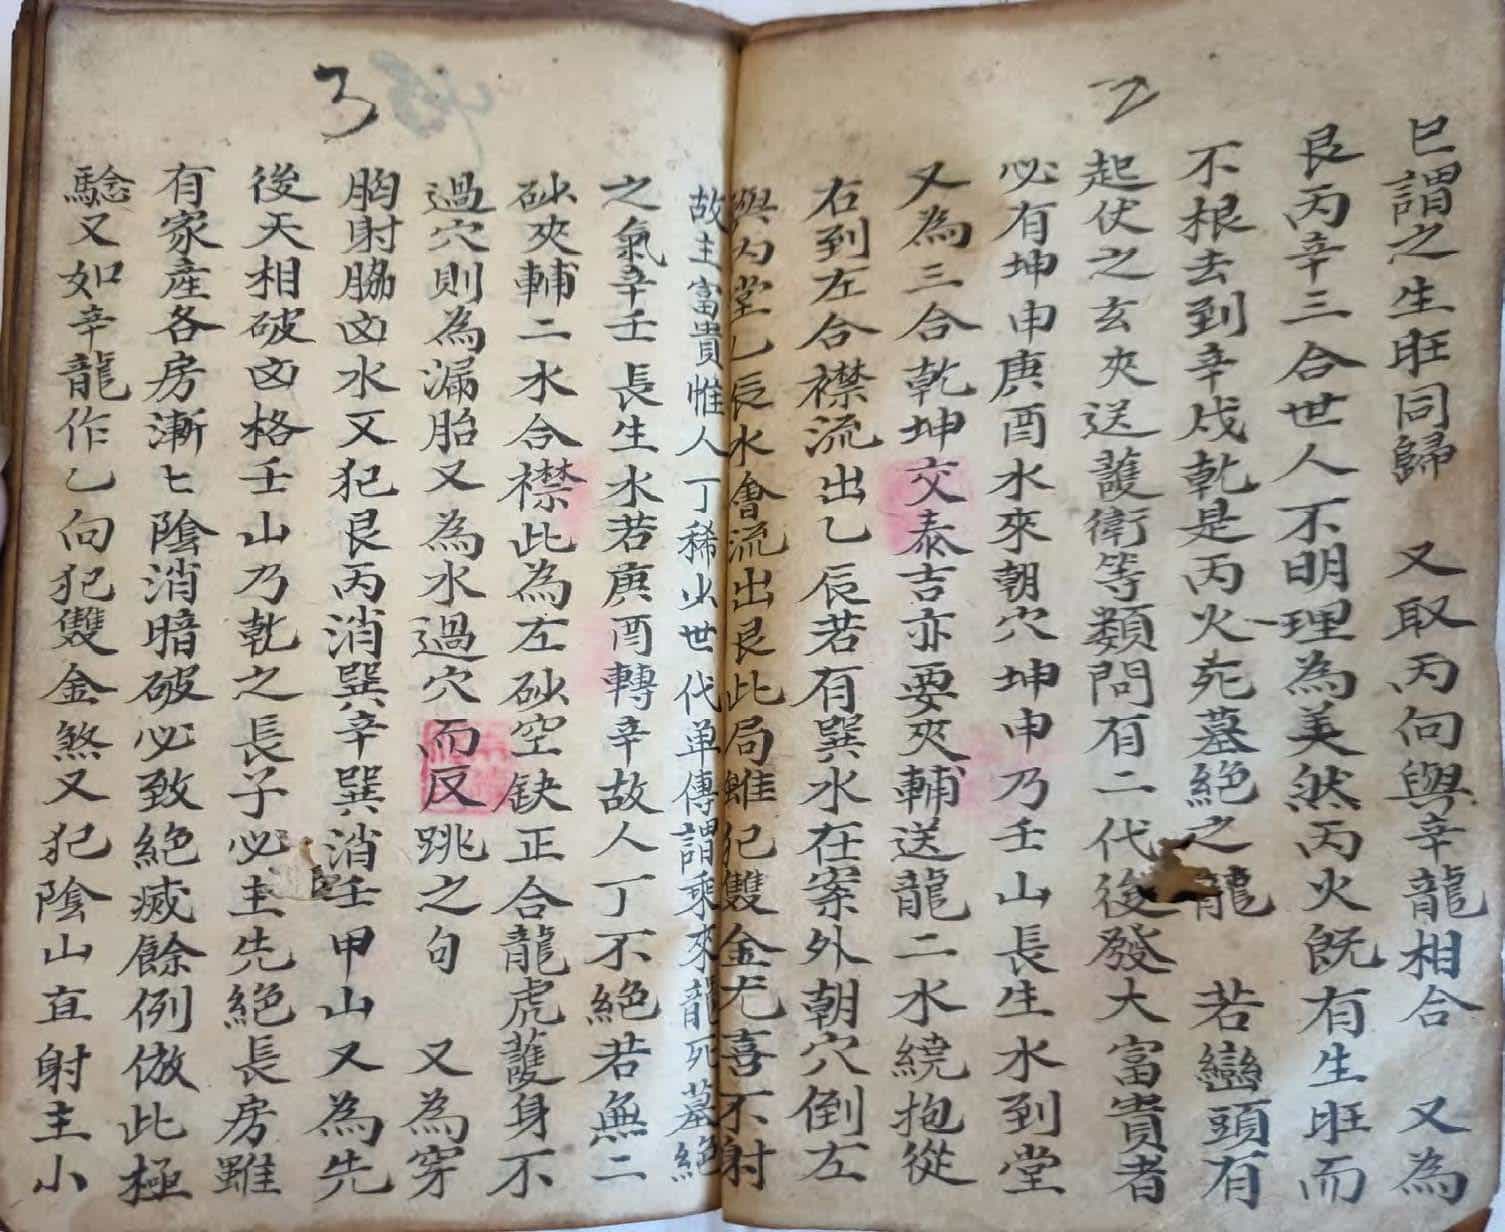 2
巳謂之生旺同歸　又取丙向與辛龍相合　又為
艮丙辛三合世人不明理為美然丙火既有生旺而
不根去到辛戌乾是丙火死墓絕之龍　若巒頭有
起伏之玄夾送護衛等類問有二代後發大富貴者
必有坤申庚酉水來朝穴坤申乃壬山長生水到堂
又為三合乾坤交泰吉亦要夾輔送龍二水繞抱從
右到左合襟流出乙辰若有巽水在案外朝穴倒左
與內堂乙辰水會流出艮此局雖犯雙金尤喜不射
3
故主富貴惟人丁稀少世代单傳謂乘來龍死墓絕
之氣辛壬長生水若庚酉轉辛故人丁不絕若無二
砂夾輔二水合襟此為左砂空缺正合龍虎護身不
過穴則為漏胎又為水過穴而反跳之句　又為穿
胸射脇凶水又犯艮丙消巽辛巽消壬甲山又為先
後天相破凶格壬山乃乾之長子必主先絕長房雖
有家產各房漸匕陰消暗破必致絕滅餘例倣此極
驗又如辛龍作乙向犯雙金煞又犯陰山直射主小